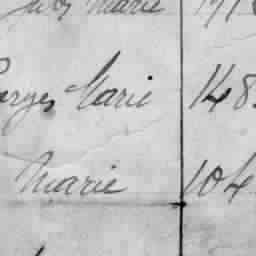 Marie
Georges Marie 148
Marie 104